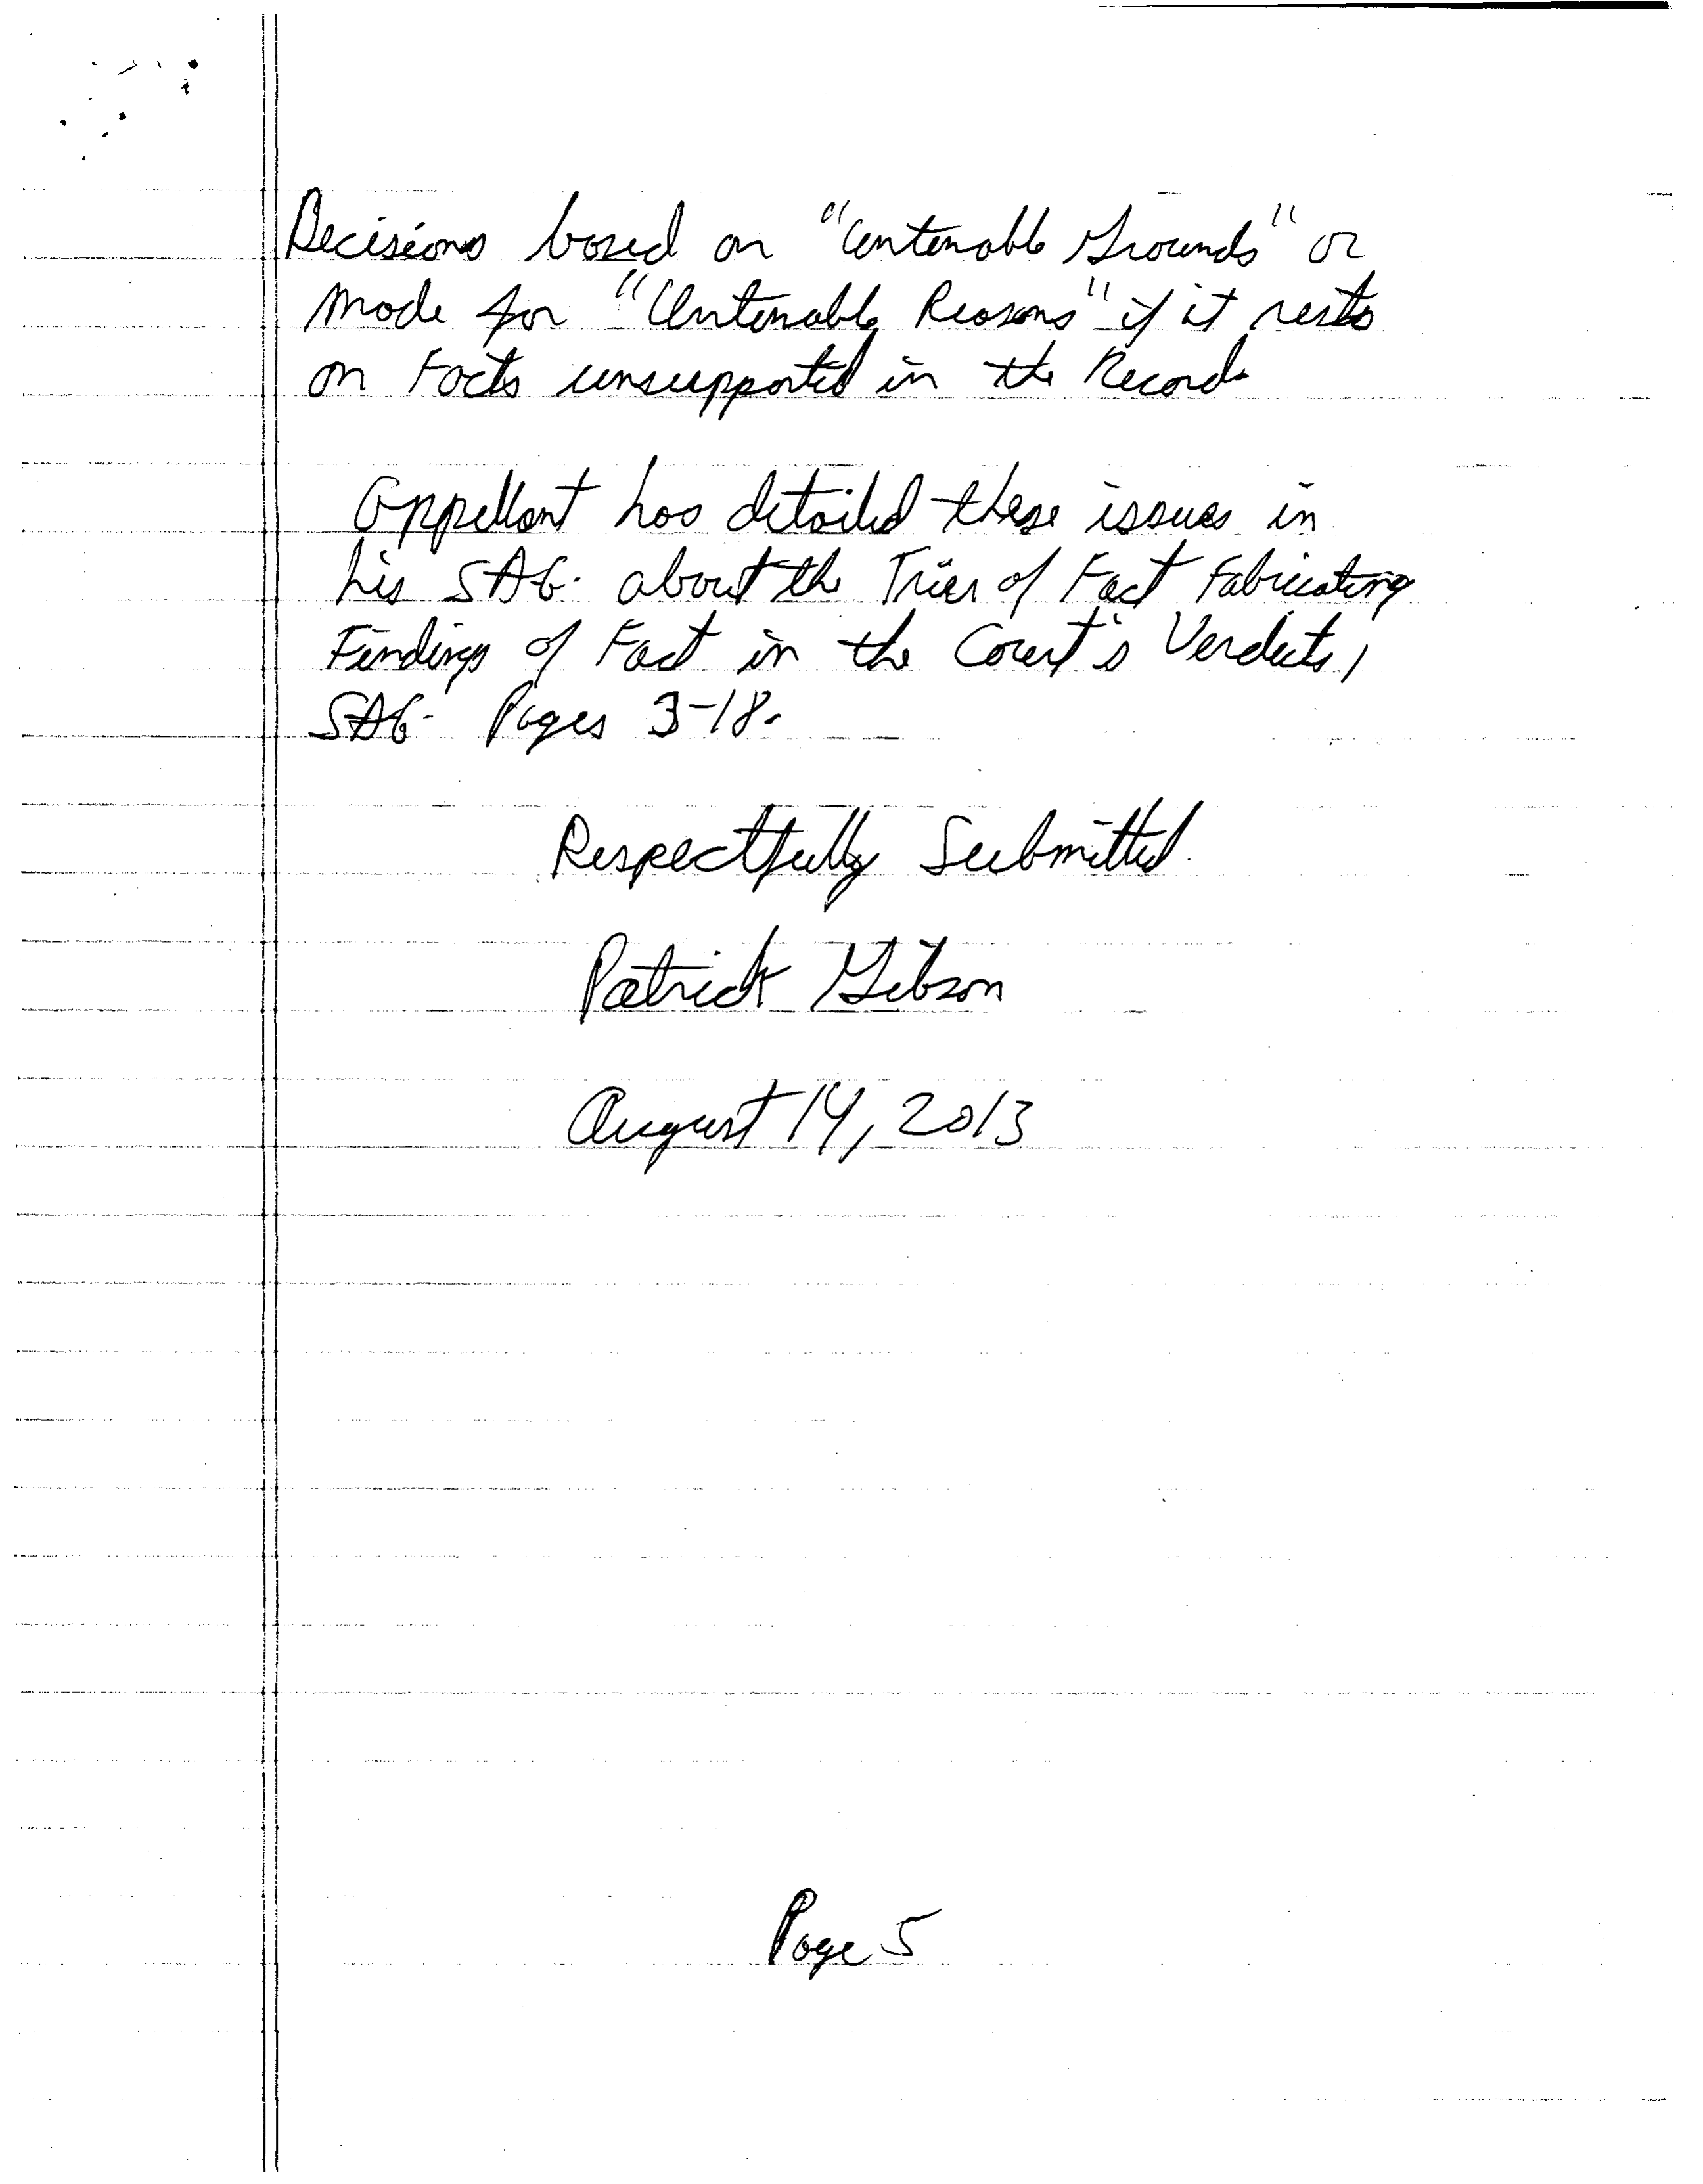 Decisions based on "Untenable Grounds" or
made for "Untenable Reasons" if it rests
on Facts unsupported in the Record.
Appellant has detailed these issues in
his SAG. about the Trier of Fact Fabricating
Findings of Fact in the Court's Verdicts,
SAG. Pages 3-18.
Respectfully Submitted.
Patrick Gibson
August 14, 2013
Page 5